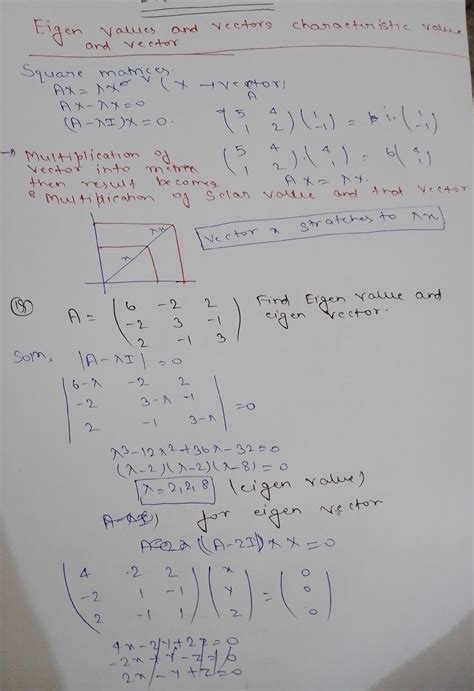 Eigen values and vectors characteristic value
and vector
Square matrices.
Ax = λx (x → vector)
Ax - λx = 0
(A - λI)x = 0.
A
(5 4
1 2) (1
-1) = 1. (1
-1)
(5 4
1 2) . (4
1) = 6(4
1)
Ax = λx.
→ Multiplication of
vector into
then result becomes
Multiplication of Scalar value and that vector
x
λx
vector x stretches to λx
A = (6 -2 2
-2 3 -1
2 -1 3)
Find Eigen value and
eigen vector.
Som, |A - λI| = 0
|6-λ -2 2
-2 3-λ -1
2 -1 3-λ| = 0
λ3 - 12λ2 + 36λ - 32 = 0
(λ-2)(λ-2)(λ-8) = 0
λ = 2, 2, 8 (eigen value)
for eigen vector
((A - 2I)) x X = 0
(4 -2 2
-2 1 -1
2 -1 1) (x
Y
z) = (0
0
0)
4x - 2y + 2z = 0
-2x + Y - z = 0
2x - Y + z = 0